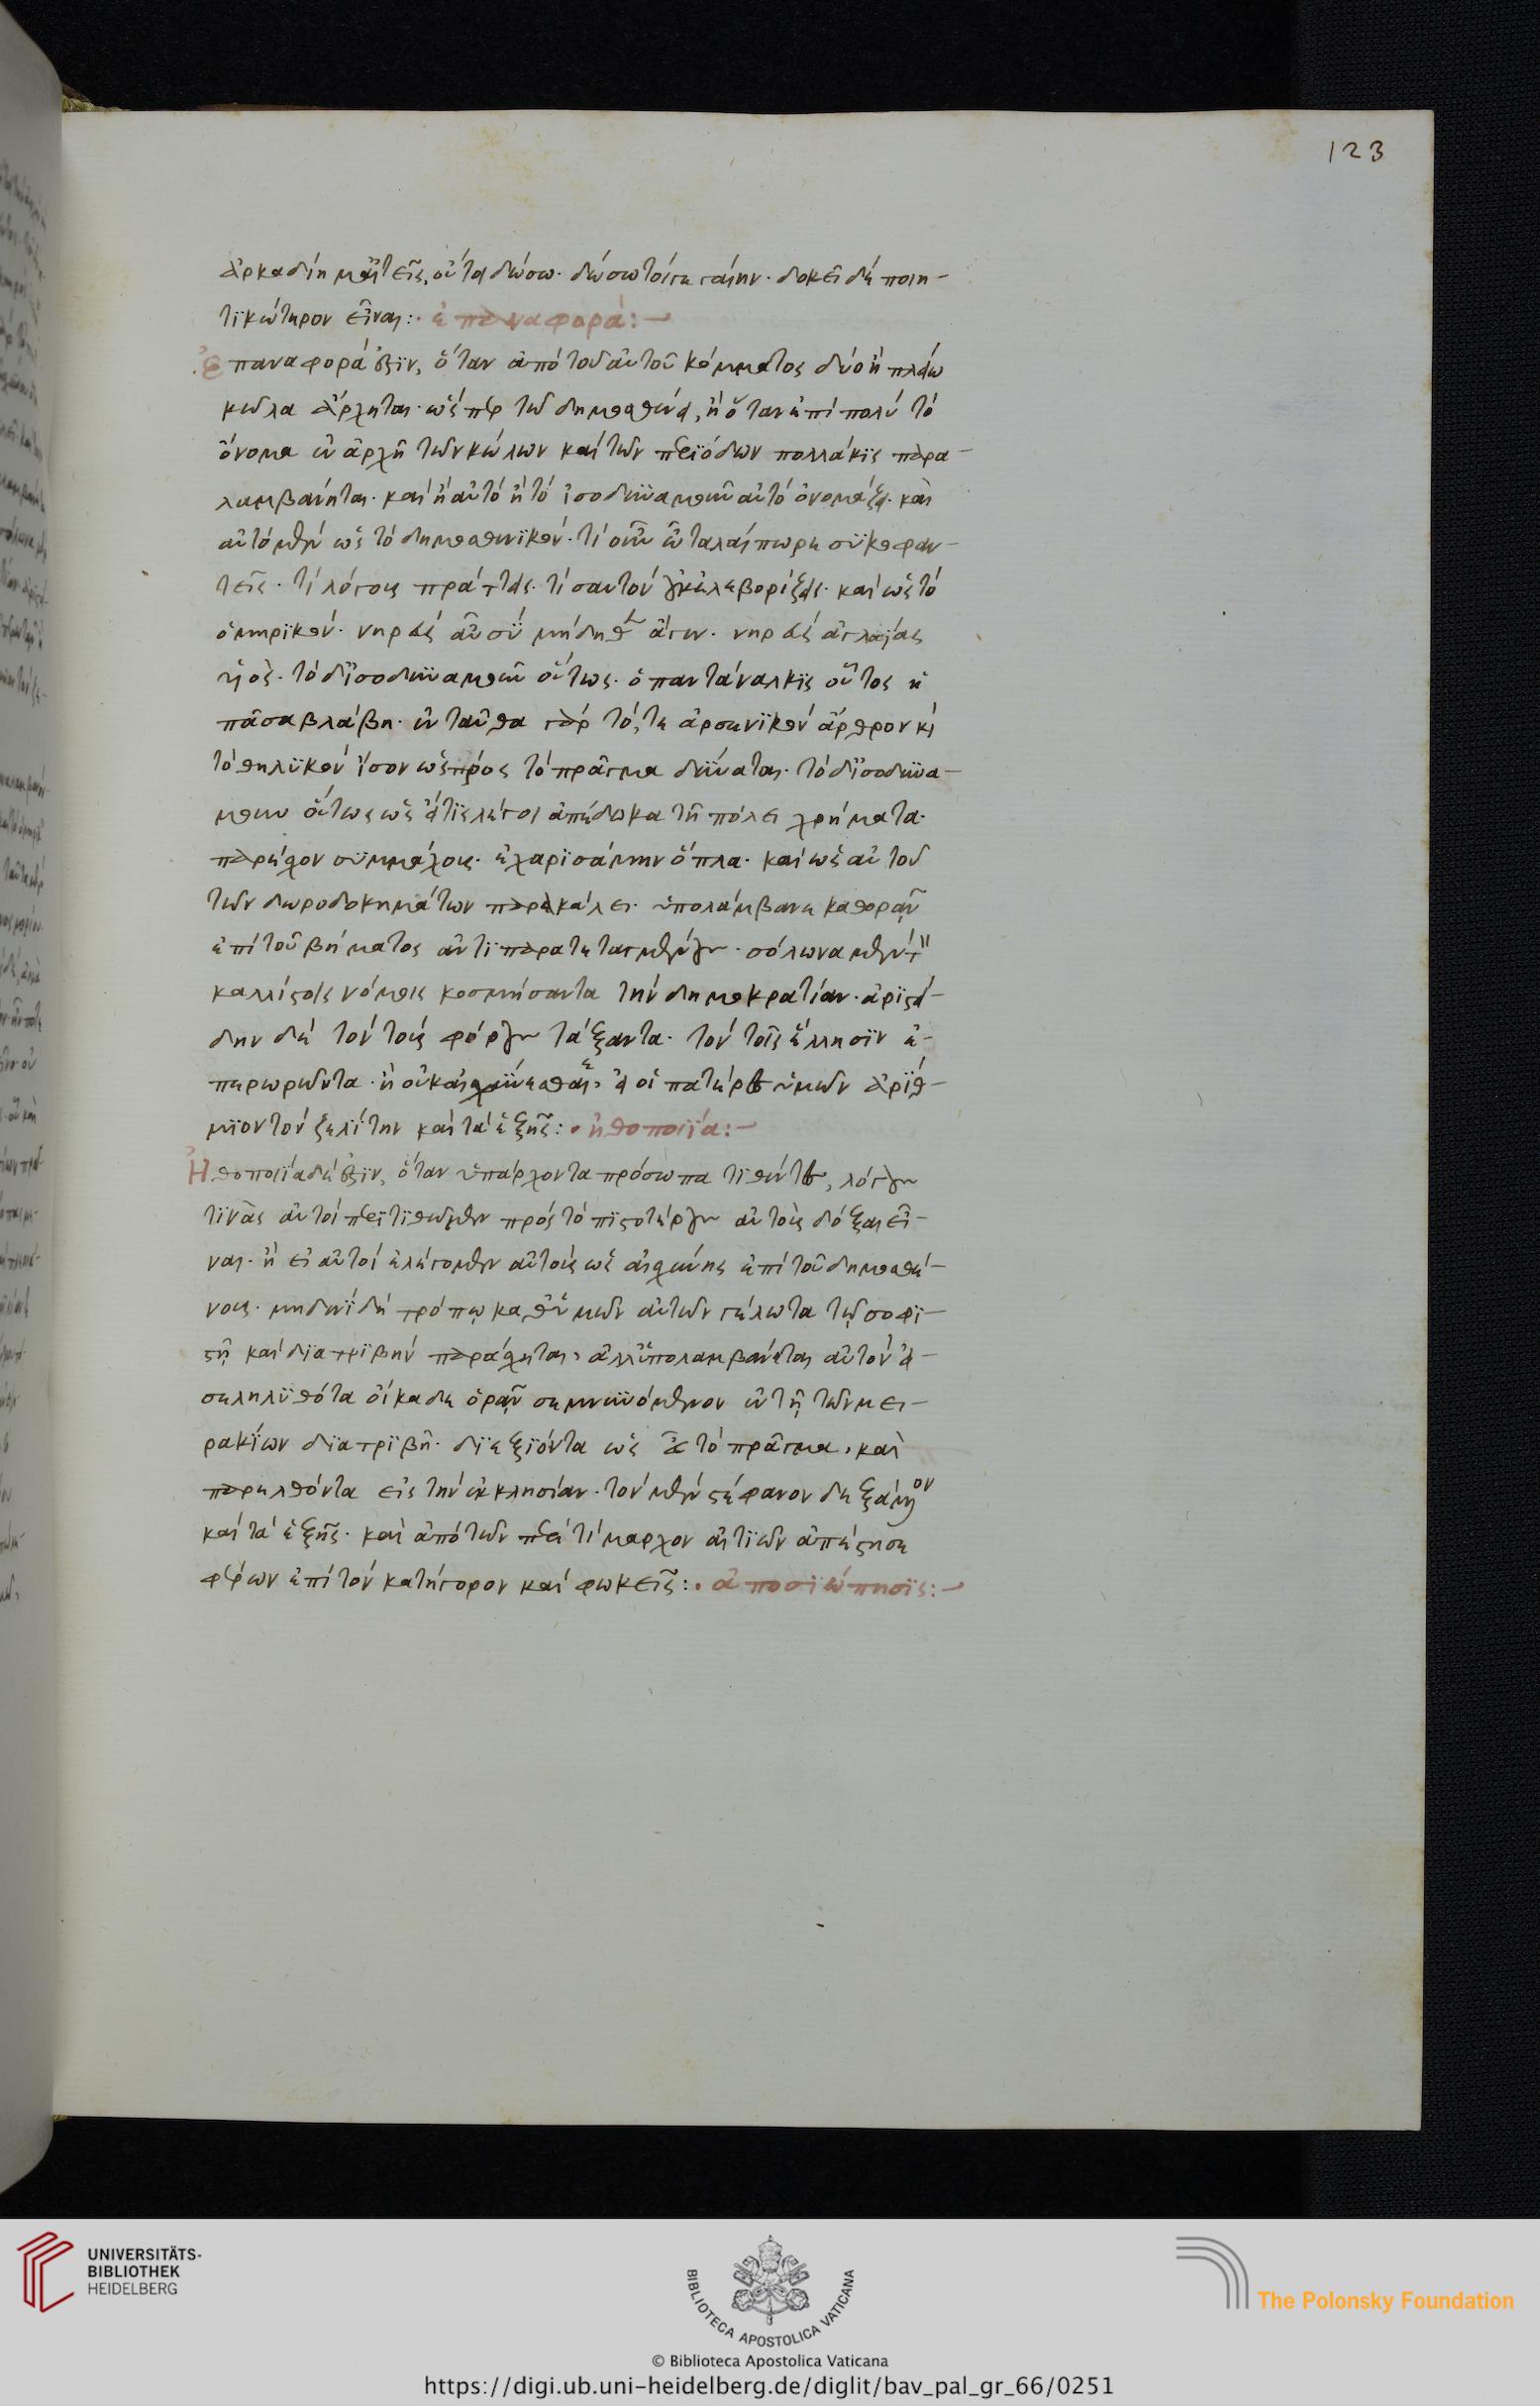 123
ἀρκαδίην μαἰτεῖς, οὔτοι δώσω· δώσω τοί τεγέην· δοκεῖ δὲ ποιη-
τϊκώτερον εἶναι:· ἐπαναφορά:-
Ἐπαναφορά ἐστϊν, ὅταν ἀπὸ τοῦ αὐτοῦ κόμματος δύο ἢ πλείω
κῶλα ἄρχηται· ὡς περ τῶ δημοσθένει, ἢ ὅταν ἐπὶ πολὺ τὸ
ὄνομα ἐν ἀρχῇ τῶν κώλων καὶ τῶν περϊόδων πολλάκϊς παρα-
λαμβάνηται· καὶ ἢ αὐτὸ ἢ τὸ ἰσοδυναμοῦν αὐτὸ ὀνομάζει· καὶ
αὐτὸ μὲν ὡς τὸ δημοσθενϊκόν· τί οὖν ὦ ταλαίπωρε συκοφαν-
τεῖς· τί λόγους πράττεις· τί σαυτὸν οὐκ ἐλεβορίζεις· καὶ ὡς τὸ
ὁμηρϊκόν·
τὸ δἰσοδυναμοῦν οὕτως· ὁ παντάναλκϊς οὗτος ἡ
πᾶσα βλάβη· ἐνταῦθα γὰρ τό, τε ἀρσενϊκὸν ἄρθρον καὶ
τὸ θηλϋκὸν ἴσον ὡς πρὸς τὸ πρᾶγμα δύναται· τὸ δἰσοδυνα-
μοῦν οὕτως ὡς εἴ τϊς λέγοι ἀπέδωκα τῇ πόλει χρήματα·
παρέσχον συμμάχους· ἐχαρϊσάμην ὅπλα· καὶ ὡς αὐτοῦ
τῶν δωροδοκημάτων παρεκάλει· ὑπολάμβανε καθορᾶν
ἐπὶ τοῦ βήματος ἀντϊπαρατεταγμένους· σόλωνα μὲν τὸν
καλλίστοις νόμοις κοσμήσαντα τὴν δημοκρατίαν· ἀρϊστεί-
δην δὲ τὸν τοὺς φόρους τάξαντα· τὸν τοῖς ἕλλησϊν ἐ-
περωρῶντα· ἢ οὐκ αἰσχύνεσθαι, εἰ οἱ πατέρες ὑμῶν ἀρϊθ-
μϊον τὸν ζελίτην καὶ τὰ ἑξῆς:· ἠθοποιΐα:-
Ἠθοποιΐα δέ ἐστϊν, ὅταν ὑπάρχοντα πρόσωπα τϊθέντες, λόγους
τϊνὰς αὐτοὶ περϊτϊθῶμεν πρὸς τὸ πϊστοτέρους αὐτοὺς δόξαι εἶ-
ναι· ἢ εἰ αὐτοὶ ἐλέγομεν αὐτοὺς ὡς αἰσχίνης ἐπὶ τοῦ δημοσθέ-
νους· μηδενὶ δὴ τρόπῳ καθὑμῶν αὐτῶν γέλωτα τῷ σοφϊ-
στῇ καὶ διατρϊβὴν παράσχηται, ἀλλὑπολαμβάνεται αὐτὸν εἰ-
σεληλϋθότα οἴκαδε ὁρᾶν σεμνυνόμενον ἐν τῇ τῶν μει-
ρακίων διατρϊβῇ· δϊεξϊόντα ὡς εὖ τὸ πρᾶγμα, καὶ
παρελθόντα εἰς τὴν ἐκκλησίαν· τὸν μὲν στέφανον δεξάμενον
καὶ τὰ ἑξῆς· καὶ ἀπὸ τῶν περὶ τίμαρχον αἰτϊῶν ἀπέστησε
φέρων ἐπὶ τὸν κατήγορον καὶ φωκεῖς:· ἀποσϊώπησϊς:-
UNIVERSITÄTS-
BIBLIOTHEK
HEIDELBERG
BIBLIOTECA APOSTOLICA VATICANA
The Polonsky Foundation
© Biblioteca Apostolica Vaticana
https://digi.ub.uni-heidelberg.de/diglit/bav_pal_gr_66/0251